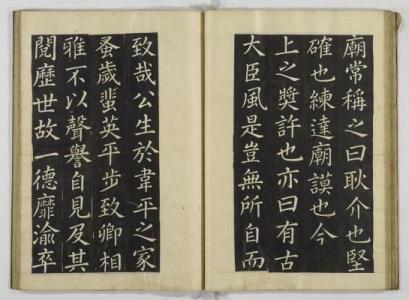 廟常稱之曰耿介也堅
確也練達廟謨也今
上之奬許也亦曰有古
大臣風是豈無所自而
致哉公生於韋平之家
蚤歲蜚英平步致卿相
雅不以聲譽自見及其
閱歷世故一德靡渝卒